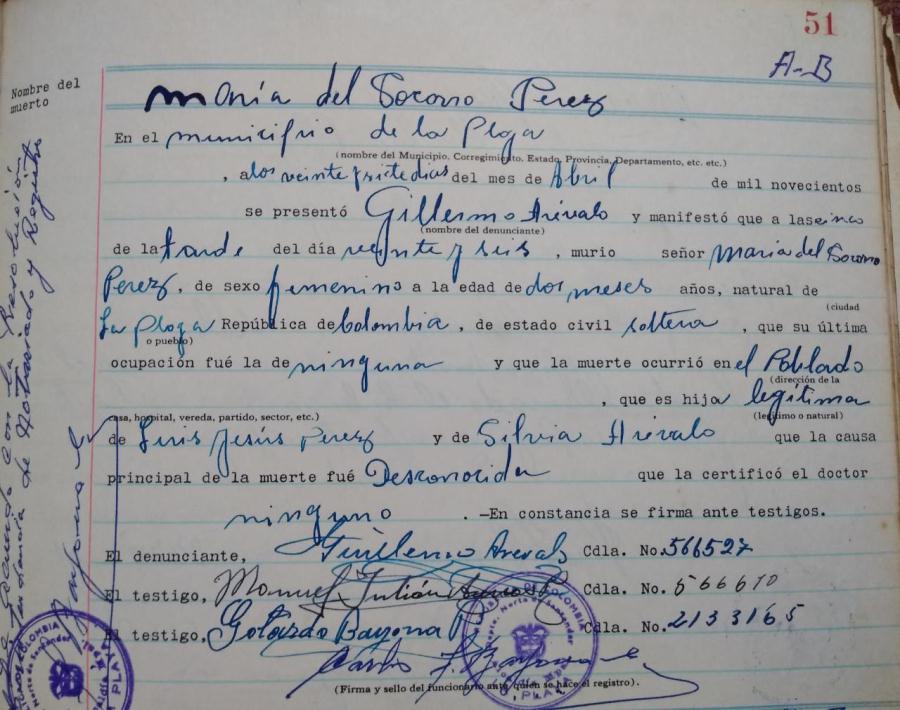 51
A-B
Nombre del
muerto
María del Socorro Perez
En el municipio de la Playa
(nombre del Municipio, Corregimiento. Estado, Provincia, Departamento, etc. etc.)
, a los veinte y siete dias del mes de Abril de mil novecientos
se presentó Gillermo Arévalo y manifestó que a las cinco
(nombre del denunciante)
de la tarde del día veinte y seis , murio señor María del Socorro
Perez, de sexo femenino a la edad de dos meses años, natural de
(ciudad
La Playa República de Colombia , de estado civil soltera , que su última
o pueblo)
ocupación fué la de ninguna y que la muerte ocurrió en el Poblado
(dirección de la
, que es hija legítima
casa, hospital, vereda, partido, sector, etc.) (legítimo o natural)
de Luis Jesús Perez y de Silvia Arévalo que la causa
principal de la muerte fué Desconocida que la certificó el doctor
ninguno . -En constancia se firma ante testigos.
El denunciante, Guillermo Arevalo Cdla. No. 566527
El testigo, Manuel Julián Cdla. No. 566610
El testigo, Gotardo Bayona P. Cdla. No. 2133165
Carlos J. Bayona
(Firma y sello del funcionario ante quien se hace el registro).
de acuerdo con la Resolución
de Notariado y Registro
COLOMBIA
Norte de Santander
PLAYA